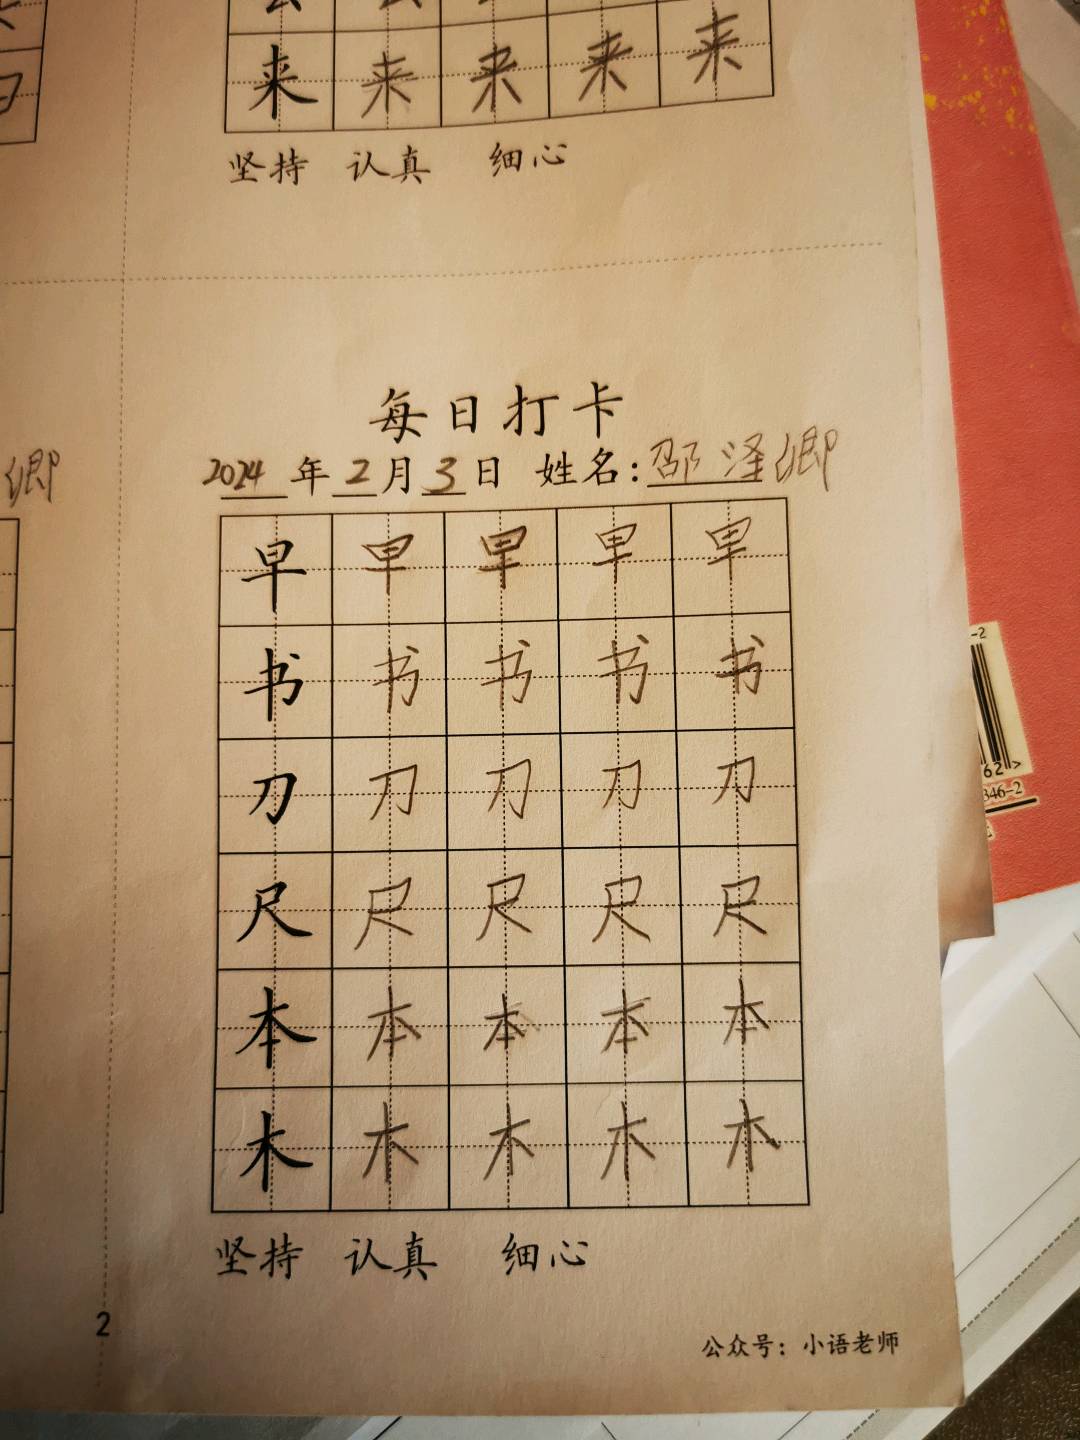 来 来 来 来 来
坚持 认真 细心
卿
每日打卡
2024 年 2 月 3 日 姓名:邵泽卿
早 早 早 早 早
书 书 书 书 书
刀 刀 刀 刀 刀
尺 尺 尺 尺 尺
本 本 本 本 本
木 木 木 木 木
坚持 认真 细心
2
公众号：小语老师
-2
62>
346-2